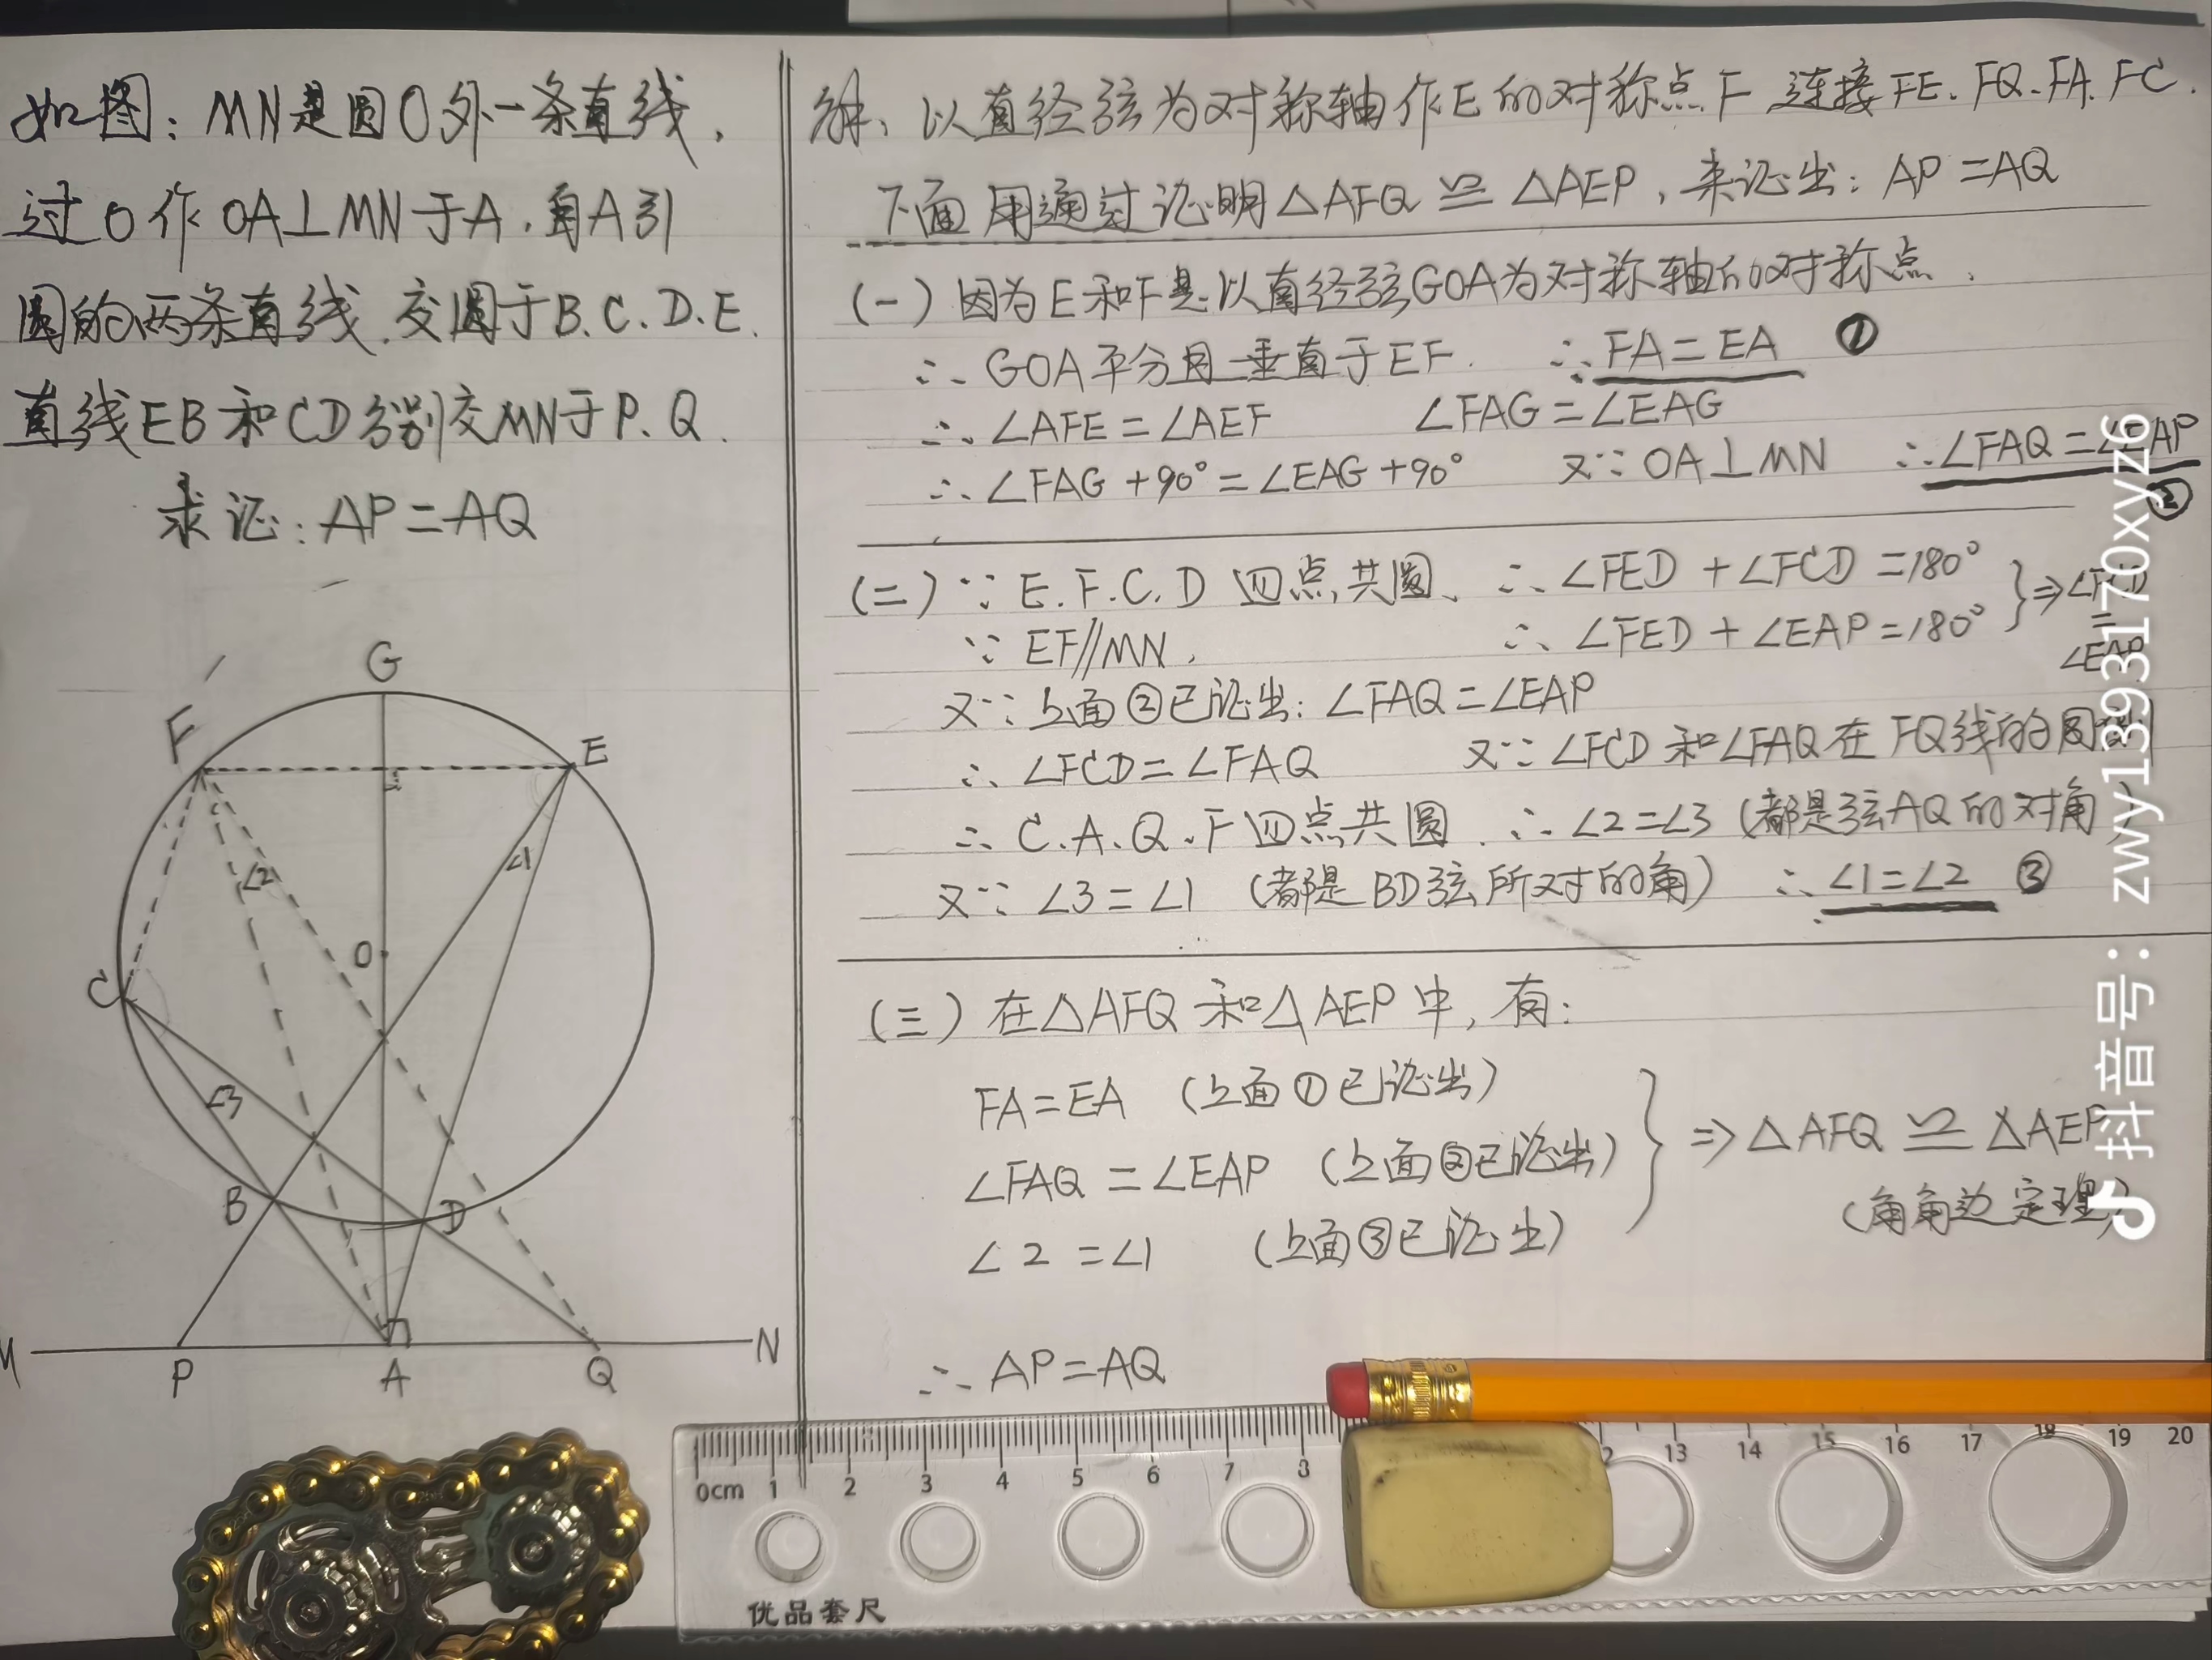 如图：MN是圆O外一条直线，
过O作OA⊥MN于A．自A引
圆的两条直线．交圆于B.C.D.E.
直线EB和CD分别交MN于P.Q.
求证：AP=AQ
G
F
E
∠1
∠2
O
C
∠3
B
D
M
P
A
Q
N
解、以直经弦为对称轴作E的对称点F 连接FE.FQ.FA.FC.
下面用通过证明△AFQ≌△AEP，来证出：AP=AQ
(一) 因为E和F是以直经弦GOA为对称轴的对称点．
∴ GOA平分且垂直于EF． ∴ FA=EA ①
∴ ∠AFE=∠AEF ∠FAG=∠EAG
∴ ∠FAG+90°=∠EAG+90° 又∵ OA⊥MN ∴ ∠FAQ=∠EAP ②
(二) ∵ E.F.C.D 四点共圆、 ∴ ∠FED+∠FCD=180°
∵ EF∥MN， ∴ ∠FED+∠EAP=180° } ⇒ ∠FCD=∠EAP
又∵ 上面②已证出：∠FAQ=∠EAP
∴ ∠FCD=∠FAQ 又∵ ∠FCD和∠FAQ在FQ线的同侧
∴ C.A.Q.F四点共圆． ∴ ∠2=∠3 (都是弦AQ的对角)
又∵ ∠3=∠1 (都是BD弦所对的角) ∴ ∠1=∠2 ③
(三) 在△AFQ和△AEP中，有：
FA=EA (上面①已证出)
∠FAQ=∠EAP (上面②已证出) } ⇒ △AFQ≌△AEP
∠2=∠1 (上面③已证出) (角角边定理)
∴ AP=AQ
抖音号：zwy1393170xyz6
0cm 1 2 3 4 5 6 7 8 2 13 14 15 16 17 18 19 20
优品套尺